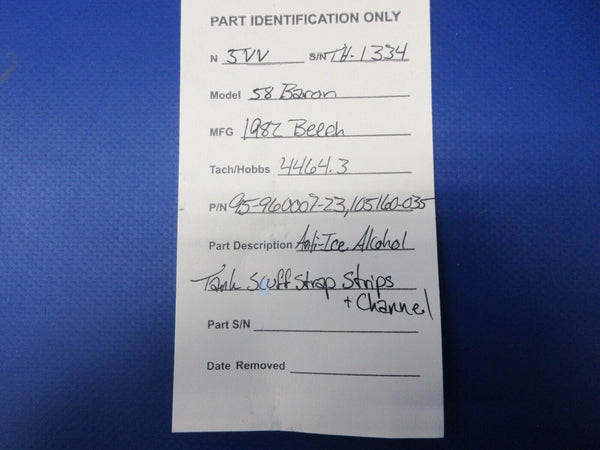 PART IDENTIFICATION ONLY
N 3VV S/N TH-1334
Model 58 Baron
MFG 1982 Beech
Tach/Hobbs 4464.3
P/N 95-960009-23, 105160-035
Part Description Anti-Ice Alcohol
Tank Scuff Strap Strips
+ Channel
Part S/N
Date Removed